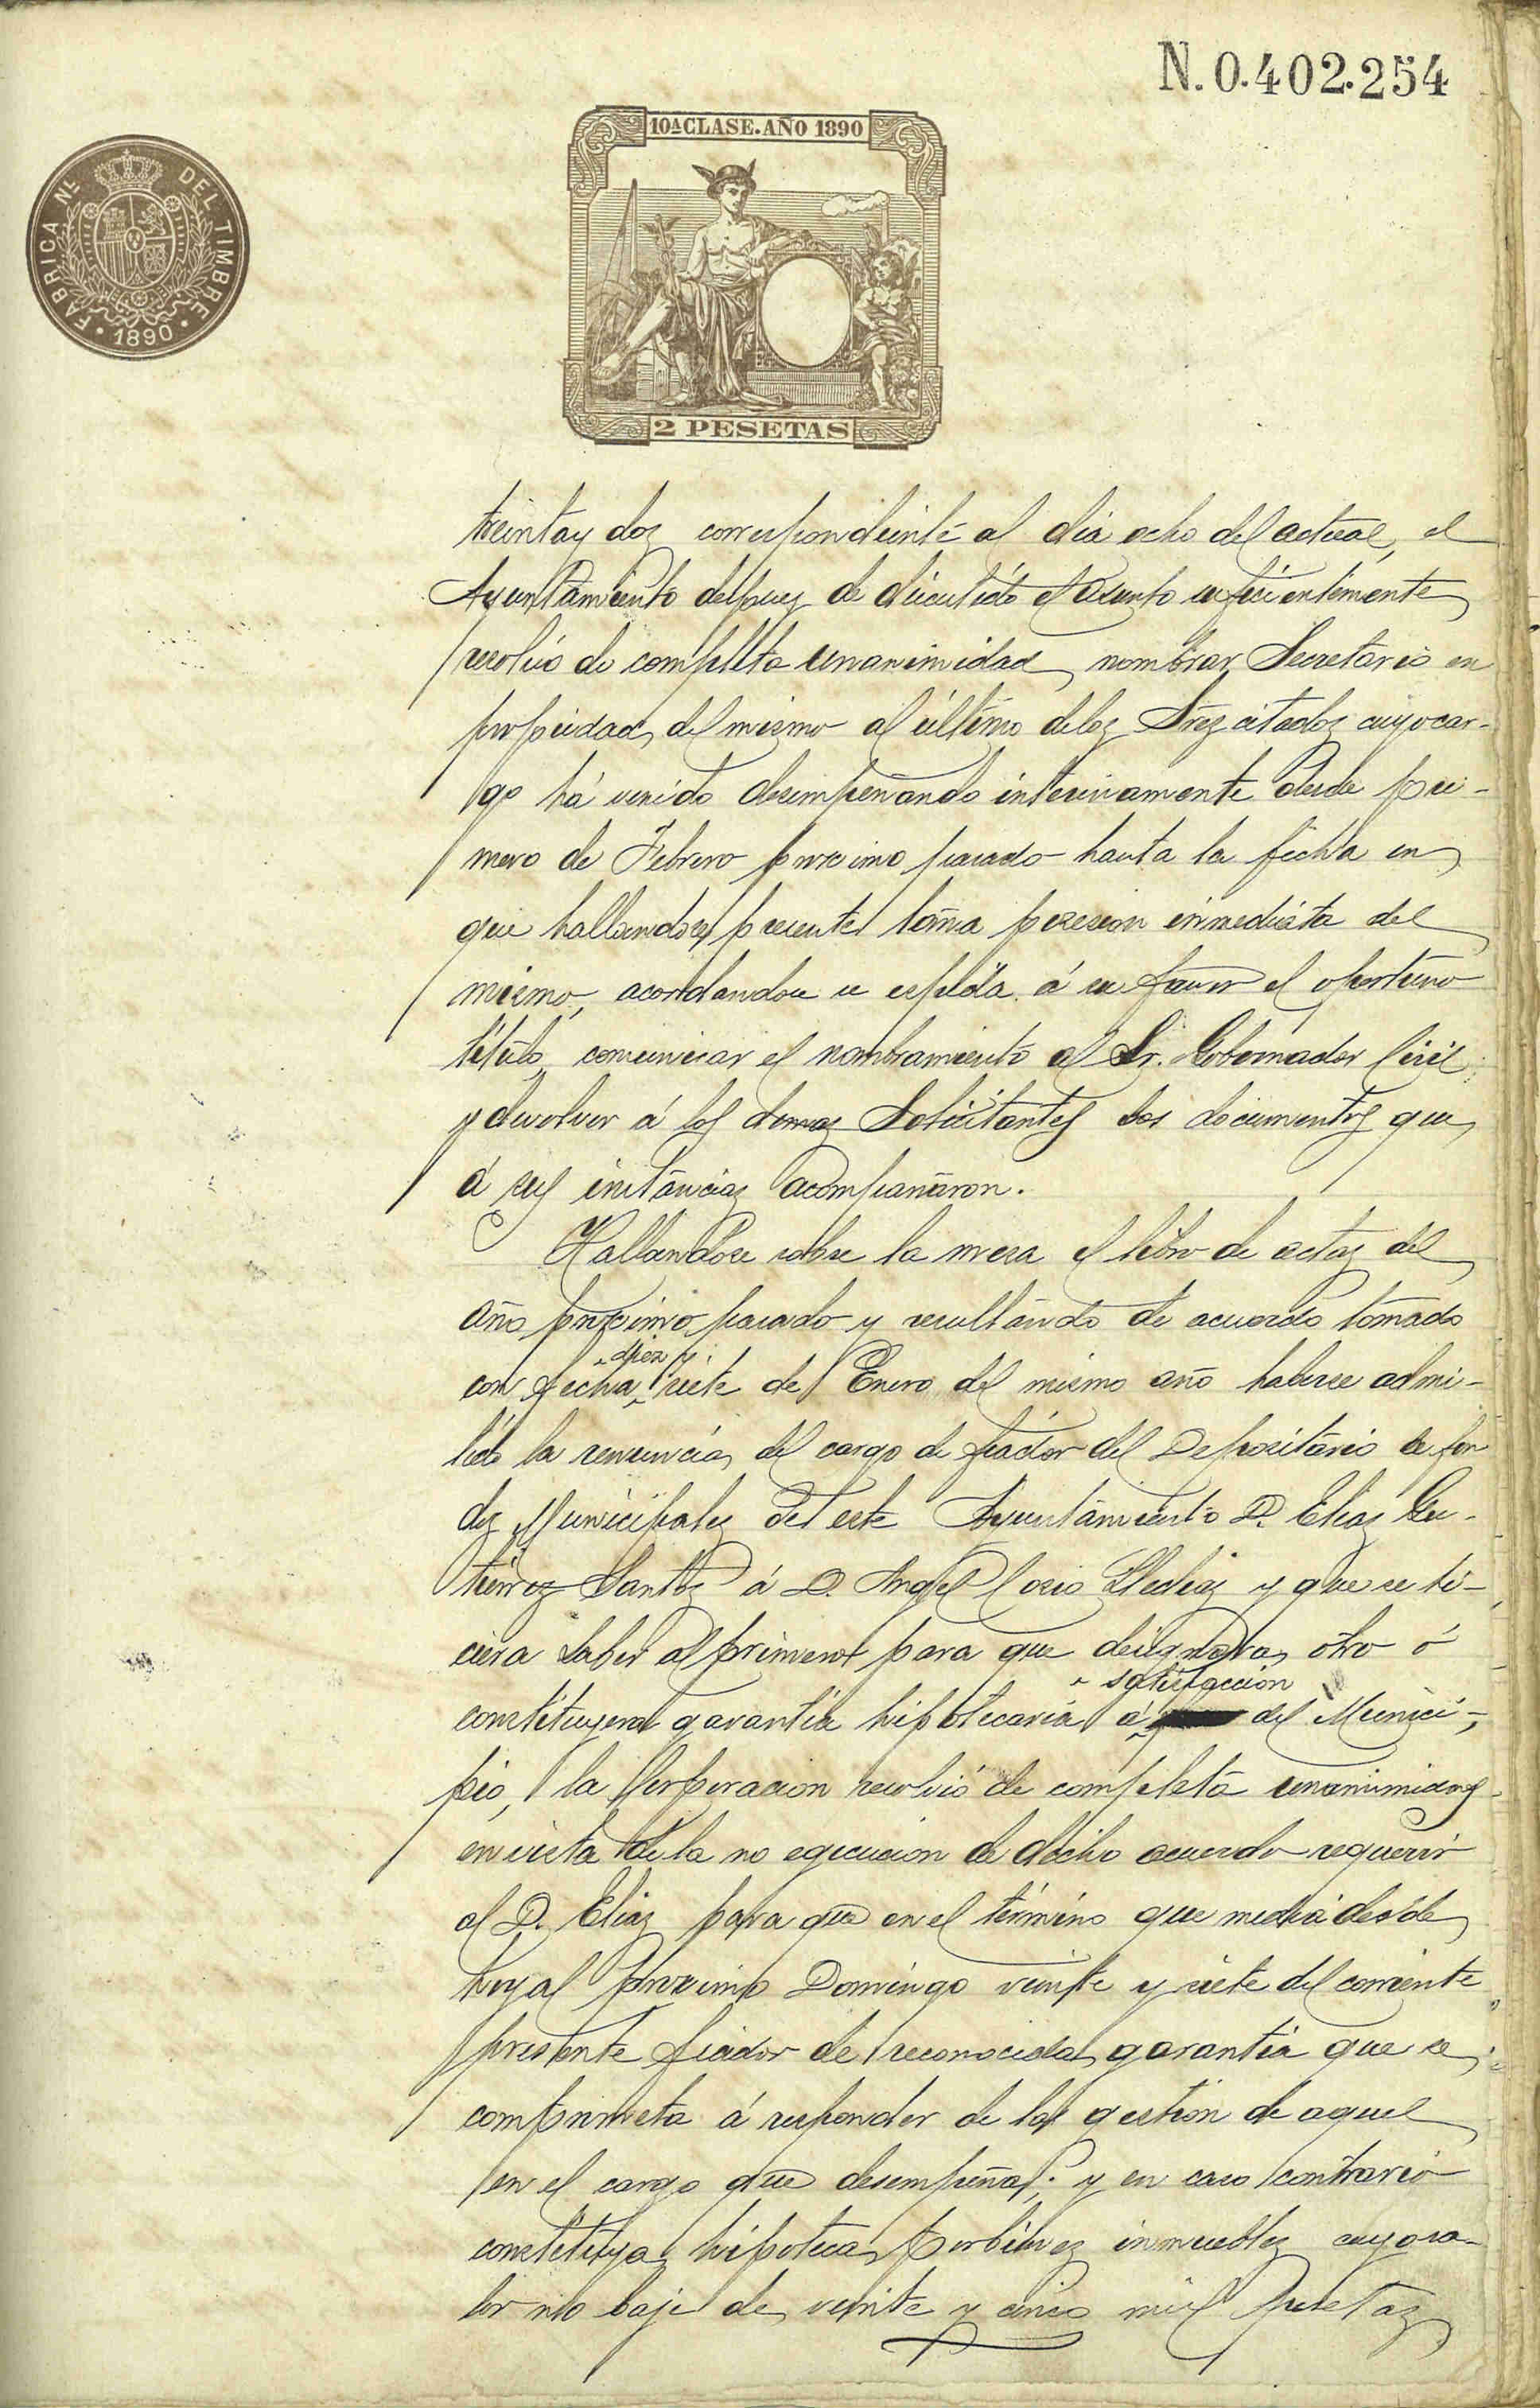 N. 0.402.254
10ª CLASE. AÑO 1890
FABRICA Nˡ DEL TIMBRE
· 1890 ·
2 PESETAS
treinta y dos correspondiente al dia ocho del actual, el
Ayuntamiento despues de discutido el asunto suficientemente
resolvió de completa unanimidad nombrar Secretario en
propiedad del mismo al último delos Sres citados cuyo car-
go há venido desempeñando interinamente desde pri-
mero de Febrero proximo pasado hasta la fecha en
que hallandose presente toma posesion inmediata del
mismo, acordandose se espida á su favor el oportuno
título, comunicar el nombramiento al Sr. Gobernador Civil
y devolver á los demas Solicitantes los documentos que
á sus instancias acompañaron.
Hallandose sobre la mesa el libro de actas del
año proximo pasado y resultando de acuerdo tomado
diez y
con fecha siete de Enero del mismo año haberse admi-
tido la renuncia del cargo de fiador del Depositario de fon
dos Municipales del este Ayuntamiento D. Elias Gu-
tierrez Santos á D. Angel Cosio y que se hi-
ciera saber al primero para que designara otro ó
satisfaccion
constituyera garantia hipotecaria á del Munici-
pio, la Corporacion resolvió de completa unanimidad
en vista de la no egecucion de dicho acuerdo requerir
al D. Elias para que en el término que media desde
hoy al proximo Domingo veinte y siete del corriente
presente fiador de reconocida garantia que se
comprometa á responder de la gestion de aquel
en el cargo que desempeña; y en caso contrario
constituya hipoteca por bienes inmuebles cuyo va-
lor no baje de veinte y cinco mil pesetas